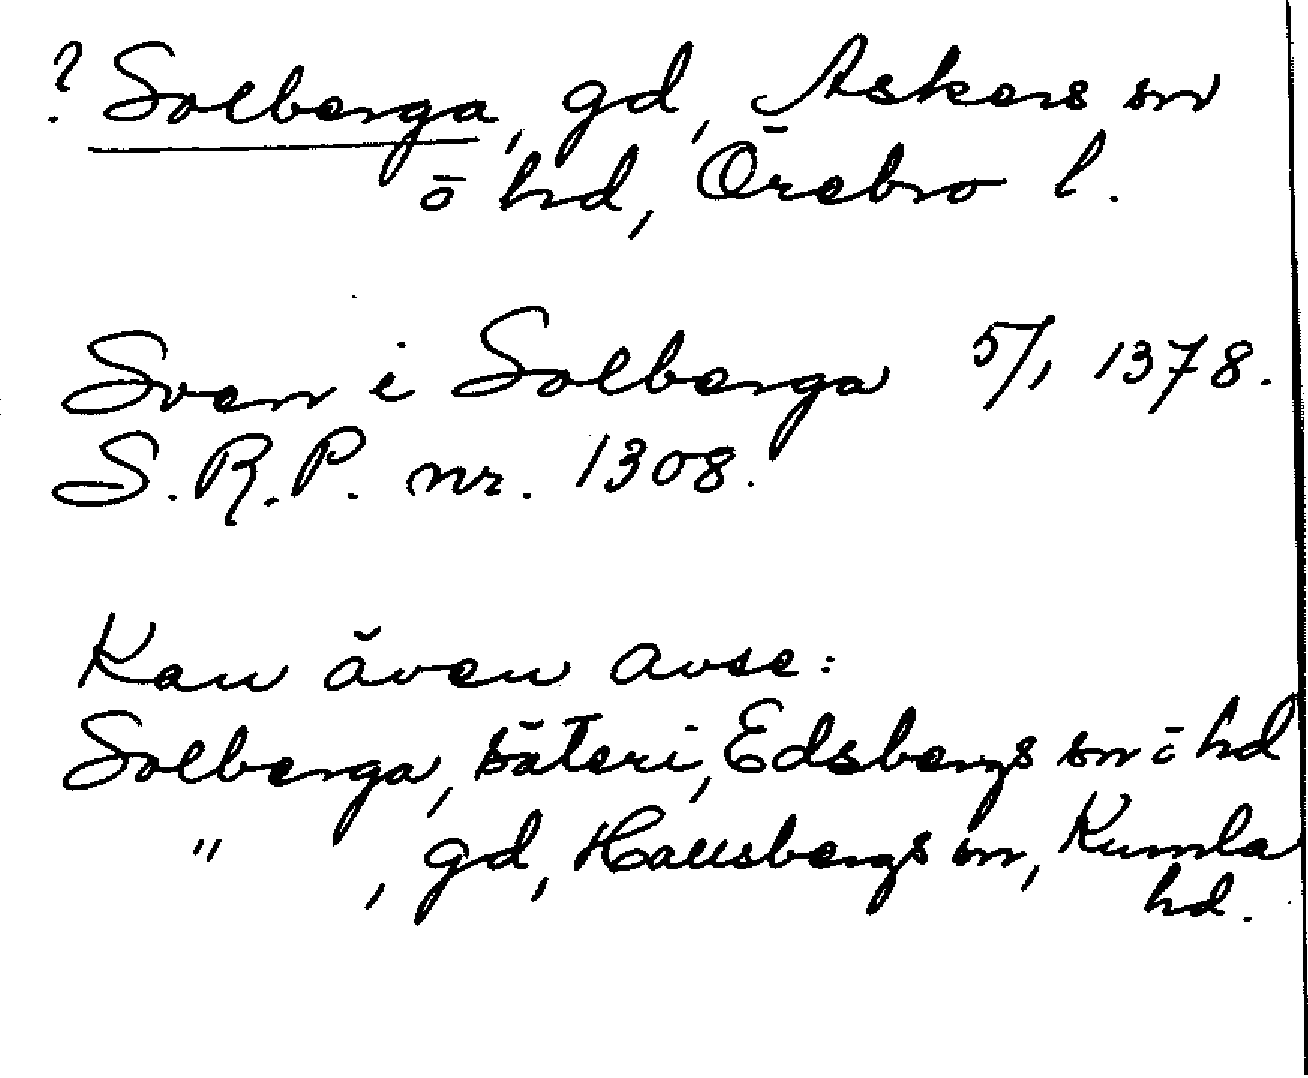 ? Solberga, gd, Askers sn
o hd, Örebro l.
Sven i Solberga 5/1 1378.
S.R.P. nr. 1308.
Kan även avse:
Solberga, säteri, Edsbergs sn o hd
" , gd, Hallsbergs sn, Kumla
hd.